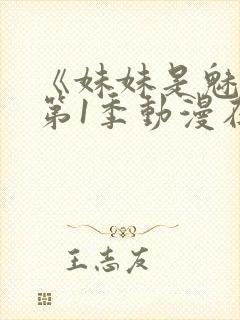 《妹妹是魅
第1季動漫在
王志友